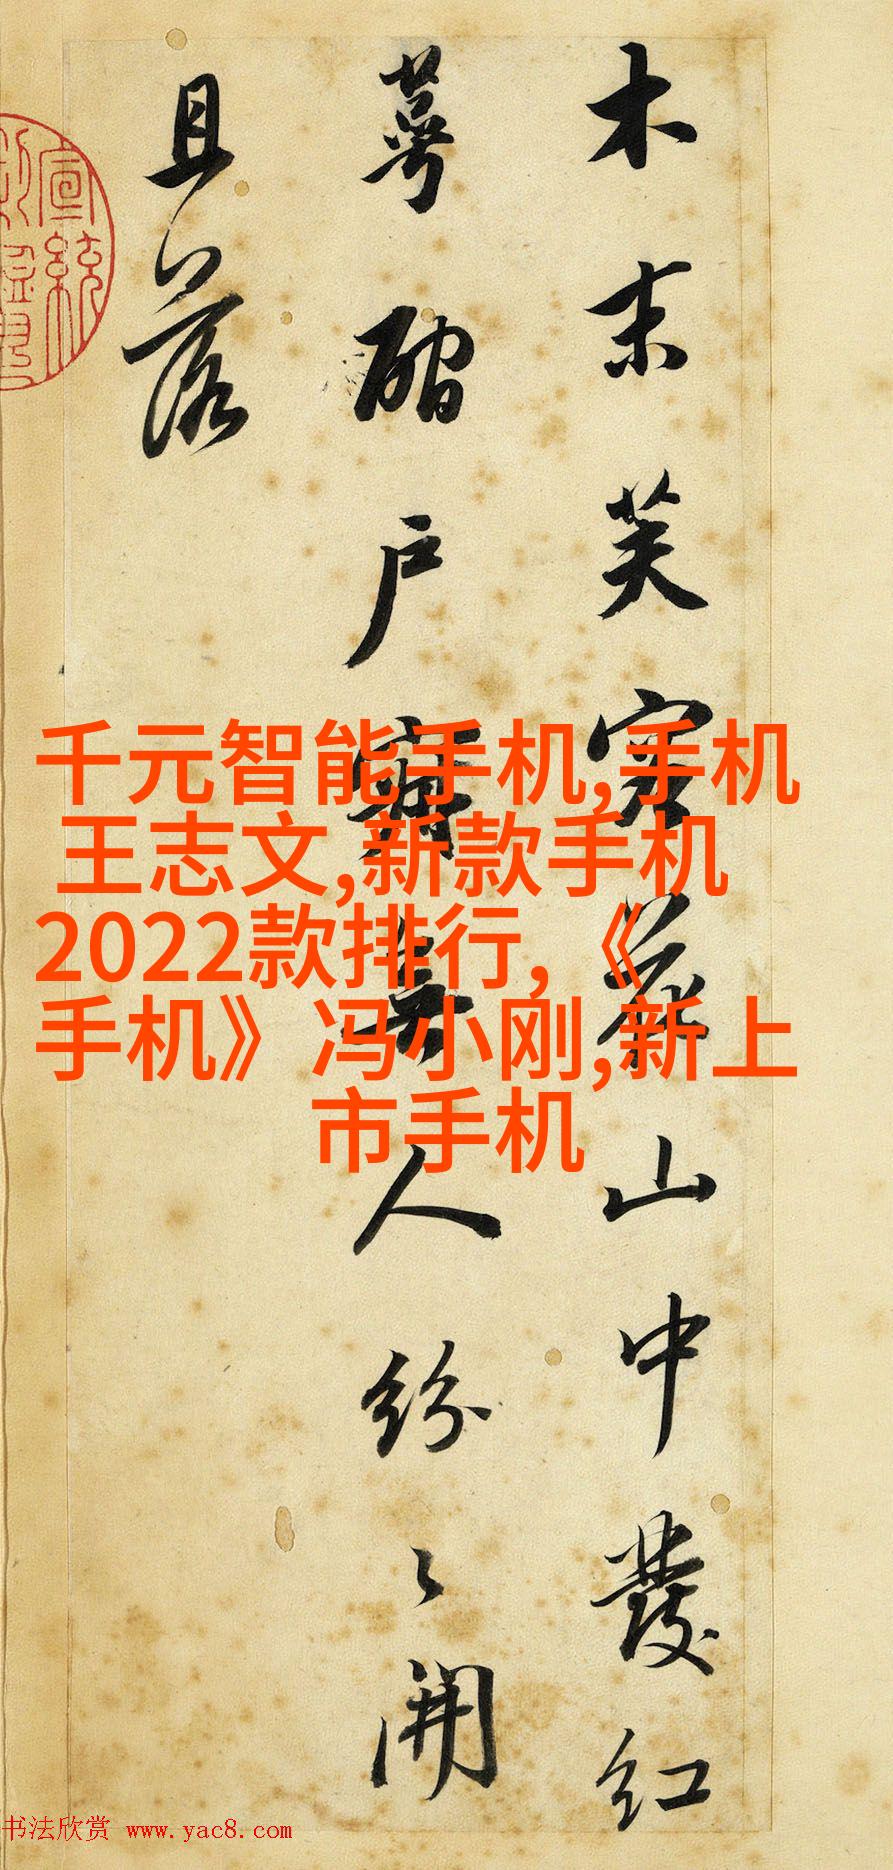 木末芙容花山中發紅
萼磵戶寂無人紛々開
且落
宣統
千元智能手机,手机
王志文,新款手机
2022款排行,《
手机》冯小刚,新上
市手机
书法欣赏 www.yac8.com